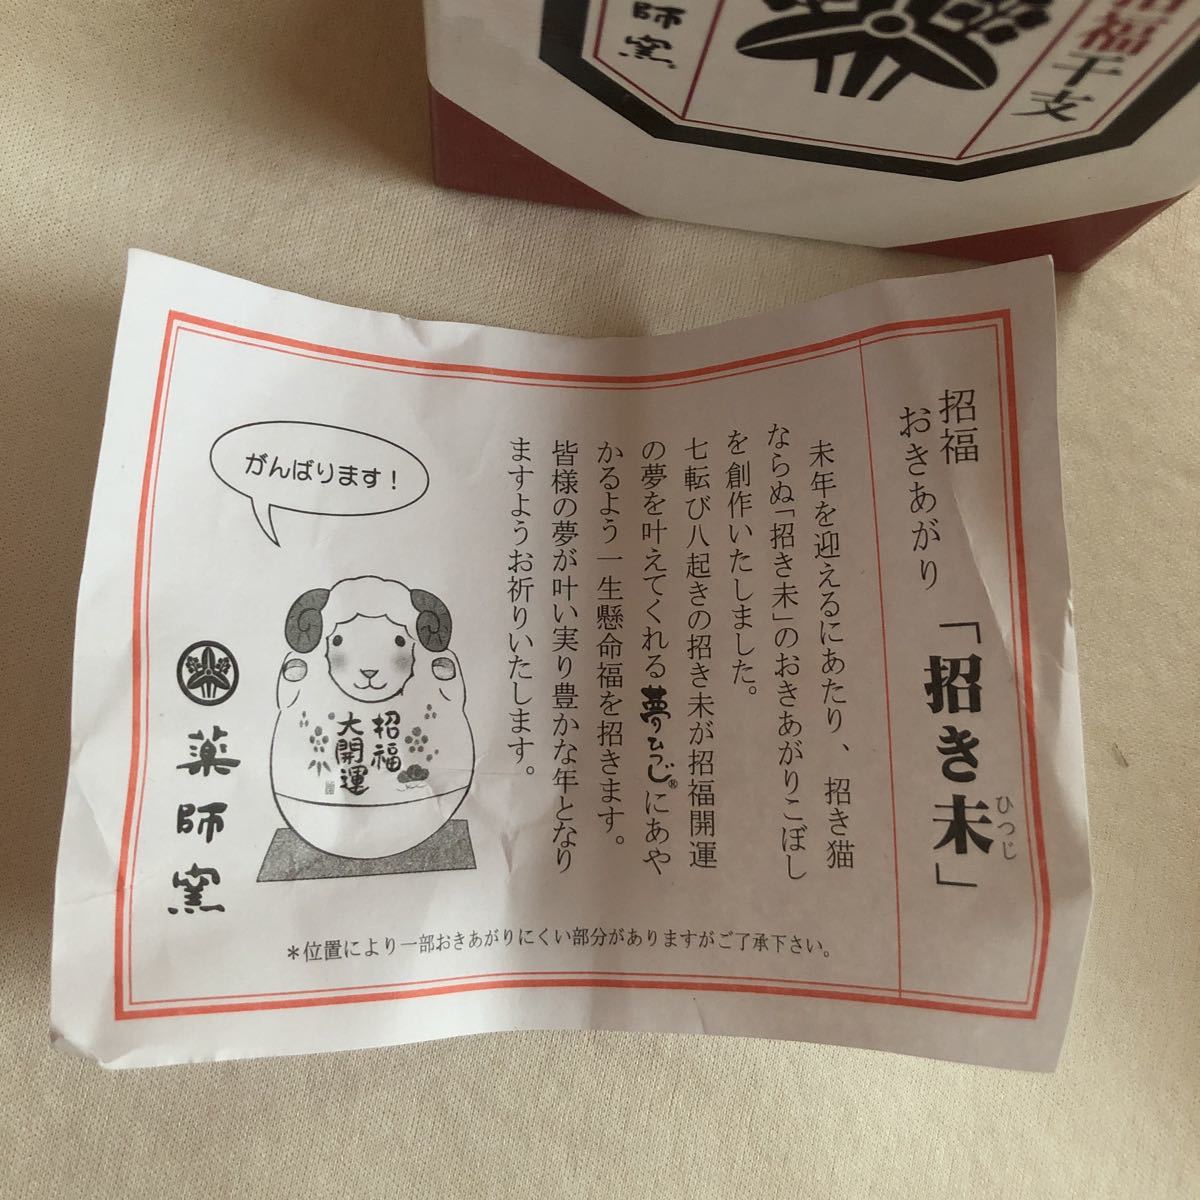 招福干支
師窯
招福
おきあがり
「招き未」
ひつじ
未年を迎えるにあたり、招き猫
ならぬ「招き未」のおきあがりこぼし
を創作いたしました。
七転び八起きの招き未が招福開運
の夢を叶えてくれる夢ひつじ®にあや
かるよう一生懸命福を招きます。
皆様の夢が叶い実り豊かな年となり
ますようお祈りいたします。
がんばります!
招福
大開運
薬師窯
*位置により一部おきあがりにくい部分がありますがご了承下さい。